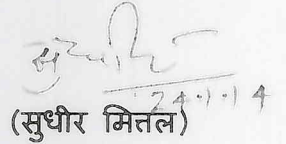 सुधीर
24.1.14
(सुधीर मित्तल)